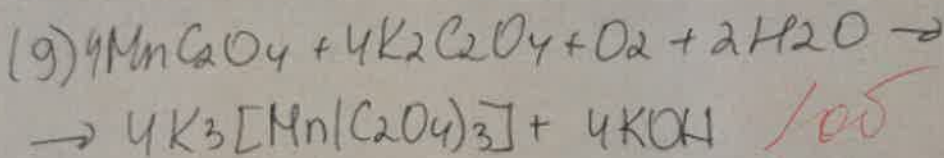 (9) 4MnC2O4 + 4K2C2O4 + O2 + 2H2O →
→ 4K3[Mn(C2O4)3] + 4KOH /об